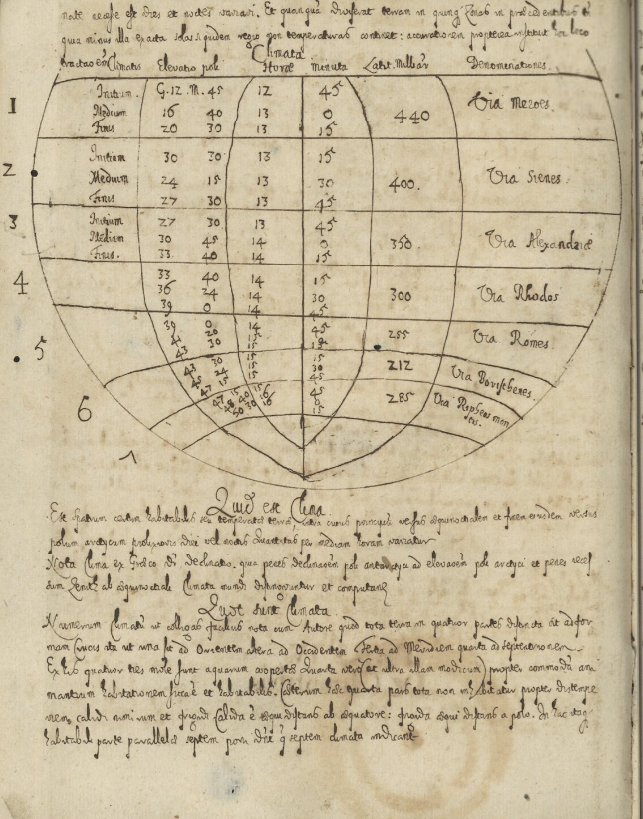 et dies et noctes variari. Et quanquam diviserat terram in quinq zonas in praecedentibus
quia minus illa exacta non temperaturas continet: accuratiorem propterea instituit hoc loco
Climata
Climatis Elevatio poli Horae minuta Latit. Milliar Denominationes.
1 Initium. G. 12. M. 45 12 45
Medium 16 40 13 0 440 Via Meroes.
Finis 20 30 13 15
2 Initium 30 30 13 15
Medium 24 15 13 30 400. Via Sienes.
Finis 27 30 13 45
3 Initium 27 30 13 45
Medium 30 45 14 0 350. Via Alexandriae
Finis. 33 40 14 15
4 33 40 14 15
36 24 14 30 300 Via Rhodos
39 0 14 45
5 39 0 14 45
41 20 15 255 Via Romes.
43 30 15
43 30 15 15
45 24 15 30 212 Via Boristhenes.
47 15 15 45
6 47 15 15 45
285 Via Ripheos mon
50 30 16 15 tes.
Quid est Clima.
Est spatium terrae habitabilis seu temperatae terrae, intra cuius principium versus aequinoctialem et finem eiusdem versus
polum arcticum prolixioris diei vel noctis quantitas per mediam horam variatur
Nota Clima ex Graeco declinatio. elevationem poli arctici et penes
Zenith ab aequinoctiale Climata mundi distinguuntur et computantur
Quot sunt Climata.
Numerum Climatum ut colligas facilius nota cum Autore quod tota terra in quatuor partes distincta sit ad for
mam crucis ita ut una sit ad Orientem altera ad Occidentem tertia ad Meridiem quarta ad septentrionem.
Ex his quatuor tres mole sunt aquarum coopertae Quarta ultra illam modicum propter commodam ani
mantium habitationem sicca et habitabilis. Caeterum haec quarta pars tota non habitatur propter distempe
riem calidi nimium et frigidi Calida aequidistans ab aequatore: frigida aequi distans a polo. In hac itaq
habitabili parte parallelae septem septem climata indicant